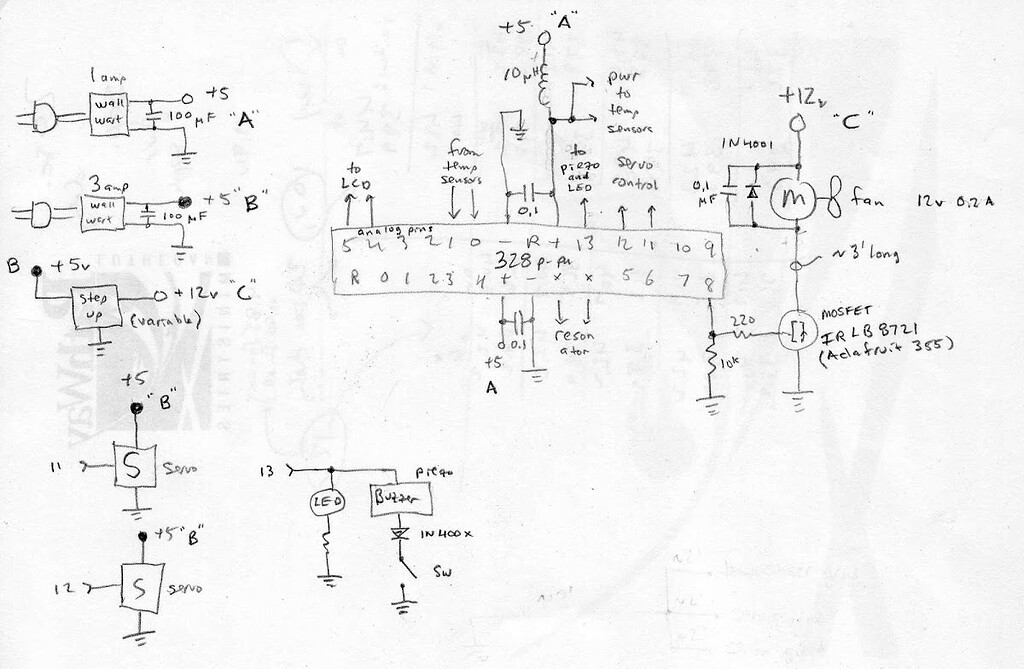 1 amp
wall
wart
+5
100 µF "A"
3 amp
wall
wart
+5 "B"
100 µF
B
+5v
Step
up
+12v "C"
(variable)
+5
"B"
11
S
servo
+5 "B"
12
S
servo
+5 "A"
10 µH
pwr
to
temp
sensors
to
LCD
from
temp
sensors
0.1
to
piezo
and
LED
servo
control
analog pins
5 4 3 2 1 0 - R + 13 12 11 10 9
328 p-pu
R 0 1 2 3 4 + - x x 5 6 7 8
0.1
+5
A
reson
ator
+12v
"C"
1N4001
0.1
µF
M
fan
12v 0.2A
~3' long
220
10k
MOSFET
IRLB8721
(Adafruit 355)
13
LED
piezo
Buzzer
1N400x
SW